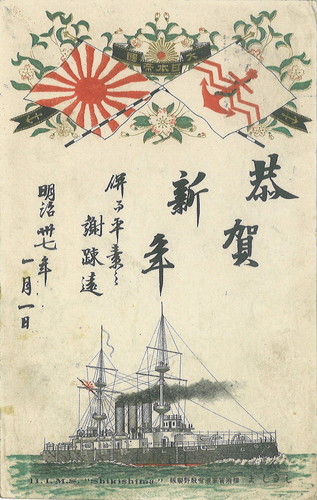 大日本帝國
恭賀
新年
併而平素之
謝疎遠
明治卅七年一月一日
H.I.M.S. "Shikishima"